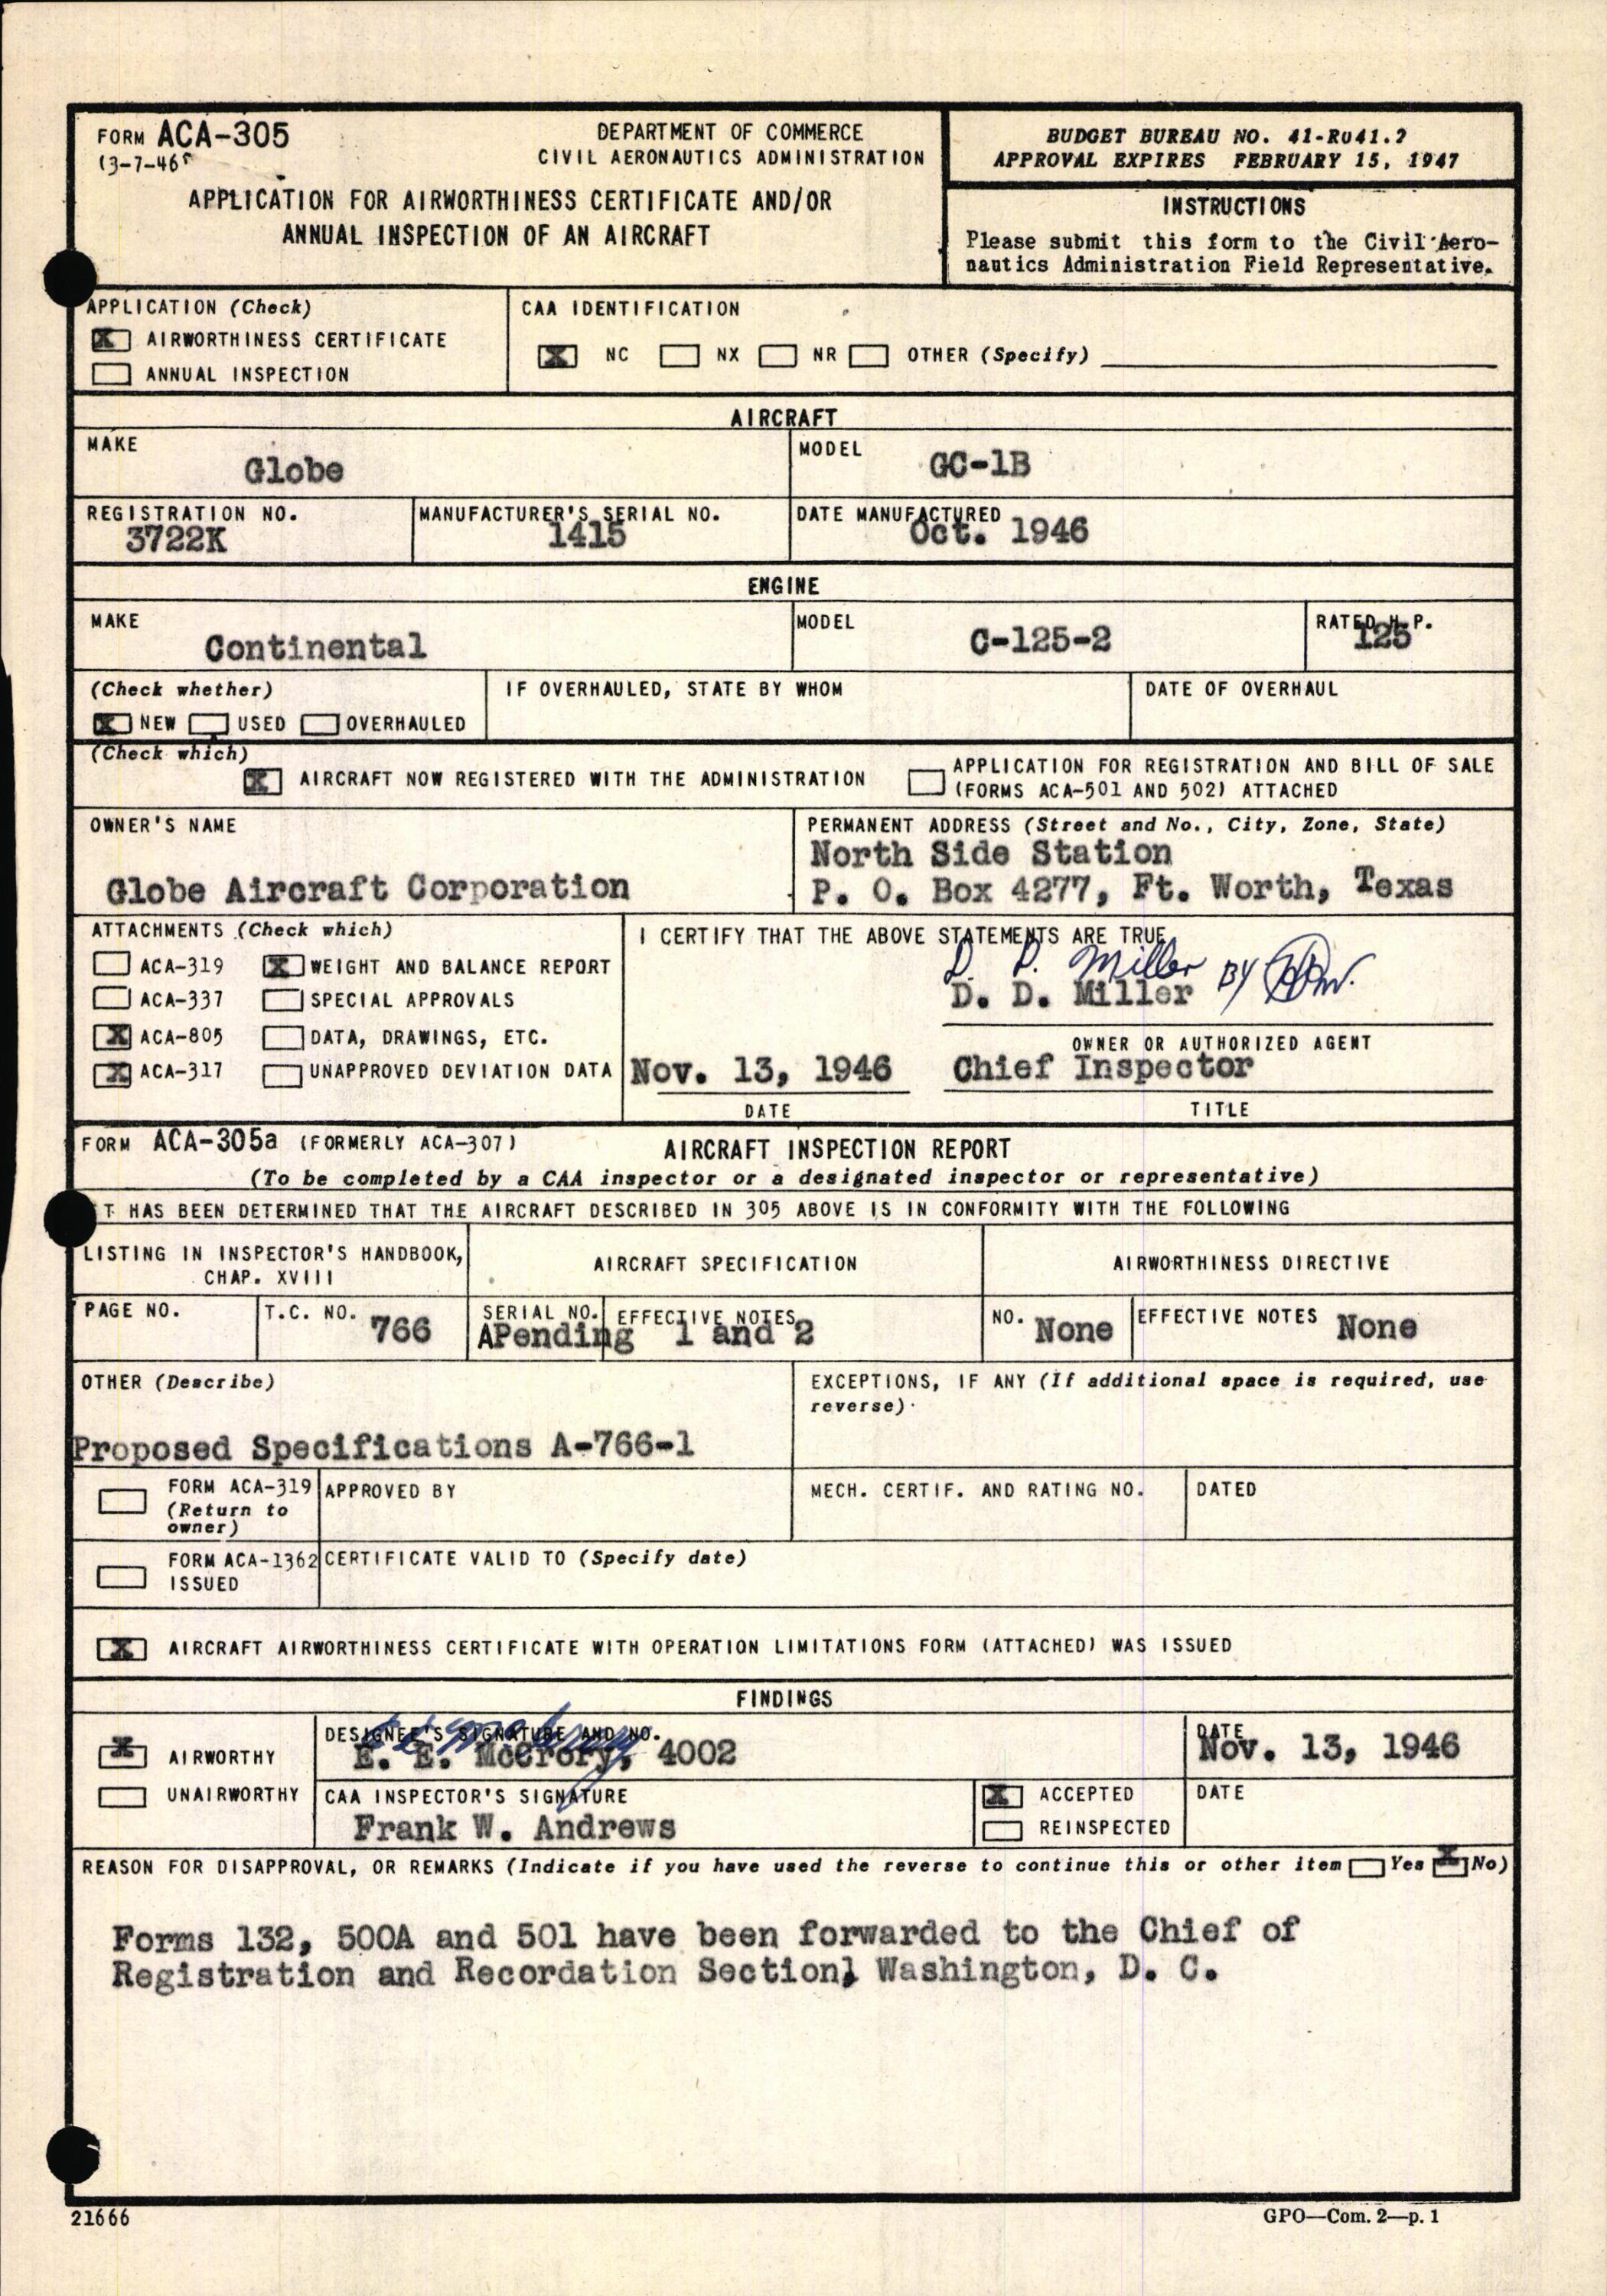 FORM ACA-305
(3-7-46)
DEPARTMENT OF COMMERCE
CIVIL AERONAUTICS ADMINISTRATION
APPLICATION FOR AIRWORTHINESS CERTIFICATE AND/OR
ANNUAL INSPECTION OF AN AIRCRAFT
BUDGET BUREAU NO. 41-R041.2
APPROVAL EXPIRES FEBRUARY 15, 1947
INSTRUCTIONS
Please submit this form to the Civil Aero-
nautics Administration Field Representative.
APPLICATION (Check)
X AIRWORTHINESS CERTIFICATE
ANNUAL INSPECTION
CAA IDENTIFICATION
X NC NX NR OTHER (Specify)
AIRCRAFT
MAKE
Globe
MODEL
GC-1B
REGISTRATION NO.
3722K
MANUFACTURER'S SERIAL NO.
1415
DATE MANUFACTURED
Oct. 1946
ENGINE
MAKE
Continental
MODEL
C-125-2
RATED H.P.
125
(Check whether)
X NEW USED OVERHAULED
IF OVERHAULED, STATE BY WHOM
DATE OF OVERHAUL
(Check which)
X AIRCRAFT NOW REGISTERED WITH THE ADMINISTRATION
APPLICATION FOR REGISTRATION AND BILL OF SALE
(FORMS ACA-501 AND 502) ATTACHED
OWNER'S NAME
Globe Aircraft Corporation
PERMANENT ADDRESS (Street and No., City, Zone, State)
North Side Station
P. O. Box 4277, Ft. Worth, Texas
ATTACHMENTS (Check which)
ACA-319 X WEIGHT AND BALANCE REPORT
ACA-337 SPECIAL APPROVALS
X ACA-805 DATA, DRAWINGS, ETC.
X ACA-317 UNAPPROVED DEVIATION DATA
I CERTIFY THAT THE ABOVE STATEMENTS ARE TRUE
D. D. Miller BY
D. D. Miller
OWNER OR AUTHORIZED AGENT
Nov. 13, 1946 Chief Inspector
DATE TITLE
FORM ACA-305a (FORMERLY ACA-307) AIRCRAFT INSPECTION REPORT
(To be completed by a CAA inspector or a designated inspector or representative)
T HAS BEEN DETERMINED THAT THE AIRCRAFT DESCRIBED IN 305 ABOVE IS IN CONFORMITY WITH THE FOLLOWING
LISTING IN INSPECTOR'S HANDBOOK,
CHAP. XVIII
AIRCRAFT SPECIFICATION
AIRWORTHINESS DIRECTIVE
PAGE NO.
T.C. NO. 766
SERIAL NO.
APending
EFFECTIVE NOTES
1 and 2
NO. None
EFFECTIVE NOTES None
OTHER (Describe)
Proposed Specifications A-766-1
EXCEPTIONS, IF ANY (If additional space is required, use
reverse)
FORM ACA-319
(Return to
owner)
APPROVED BY
MECH. CERTIF. AND RATING NO.
DATED
FORM ACA-1362
ISSUED
CERTIFICATE VALID TO (Specify date)
X AIRCRAFT AIRWORTHINESS CERTIFICATE WITH OPERATION LIMITATIONS FORM (ATTACHED) WAS ISSUED
FINDINGS
X AIRWORTHY
UNAIRWORTHY
DESIGNEE'S SIGNATURE AND NO.
E. E. McCrory, 4002
DATE
Nov. 13, 1946
CAA INSPECTOR'S SIGNATURE
Frank W. Andrews
X ACCEPTED
REINSPECTED
DATE
REASON FOR DISAPPROVAL, OR REMARKS (Indicate if you have used the reverse to continue this or other item Yes X No)
Forms 132, 500A and 501 have been forwarded to the Chief of
Registration and Recordation Section, Washington, D. C.
21666
GPO—Com. 2—p. 1